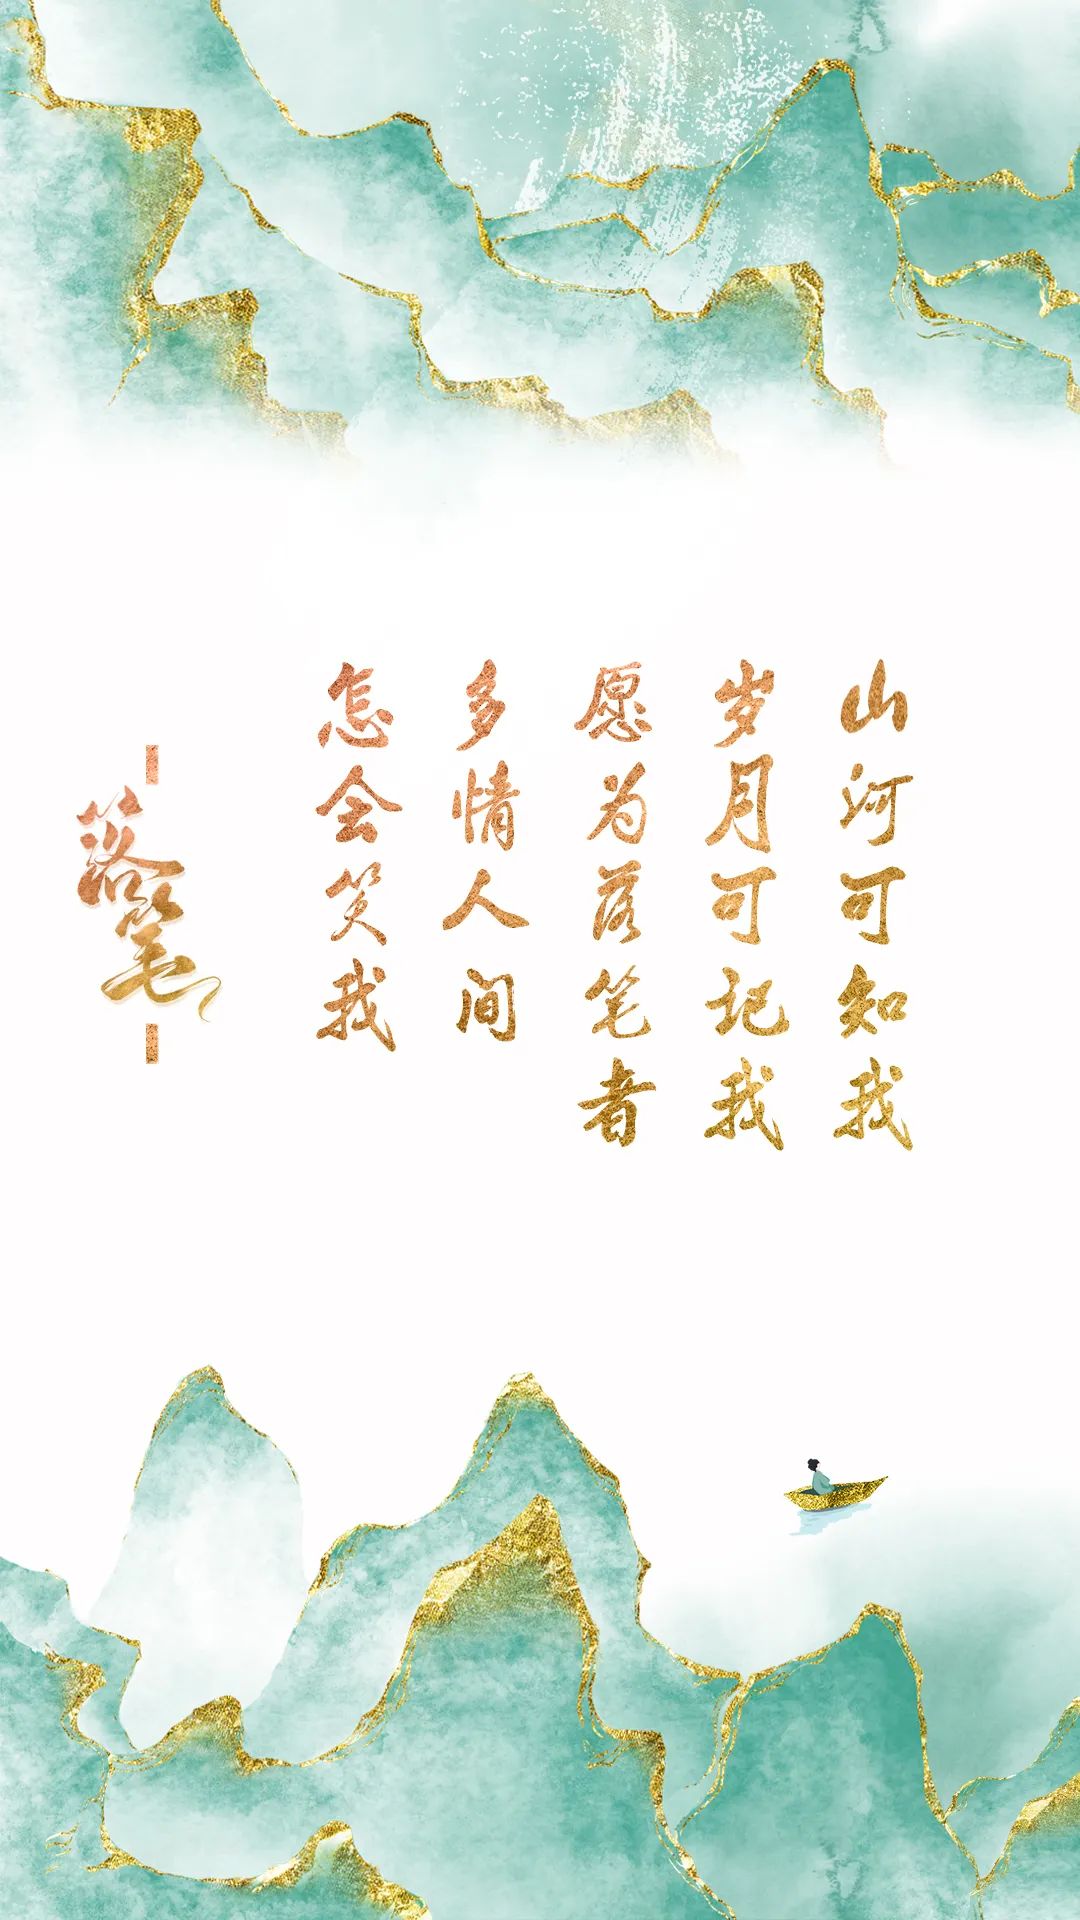 山河可知我
岁月可记我
愿为落笔者
多情人间
怎会笑我
落笔